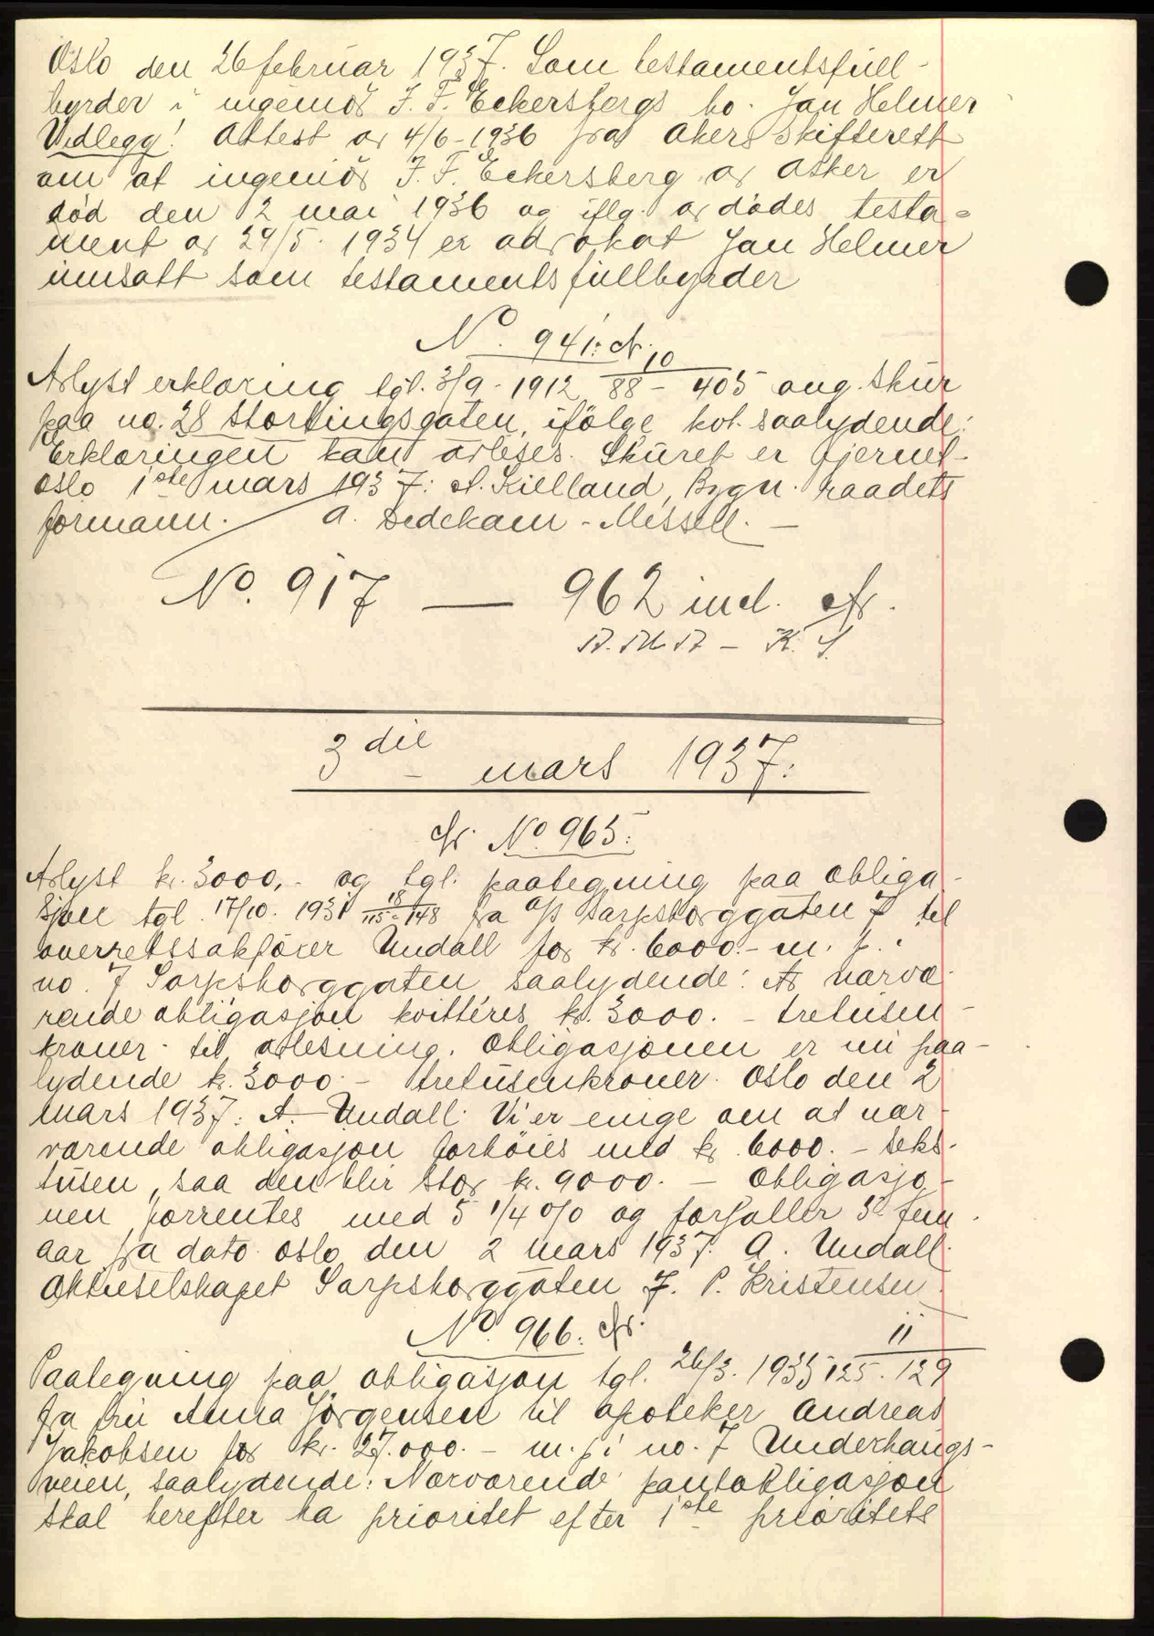 Oslo den 26 februar 1937. Som testamentsfull-
byrder i ingeniör J. F. Eckersbergs bo. Jan Helmer
Vedlegg! Attest av 4/6-1936 fra Akers skifterett
om at ingeniör J. F. Eckersberg av Asker er
død den 2 mai 1936 og iflg. avdødes testa-
ment av 29/5. 1934 er advokat Jan Helmer
innsatt som testamentsfullbyrder
No. 941:
Avlyst erklæring tgl. 3/9-1912 10/88-405 ang. skur
paa no. 28 Stortingsgaten, ifölge kvt. saalydende:
Erklæringen kan avleses. Skuret er fjernet.
Oslo 1ste mars 1937: A. Kielland, Bygn. raadets
formann. A. Dedekam-
No. 917 — 962 incl.
3die mars 1937:
No 965:
Avlyst kr. 3000,- og tgl. paategning paa obliga-
sjon tgl. 17/10. 1931 18/115-148 fra A/S Sarpsborggaten 7 til
overrettssakförer Undall for kr. 6000.- m. p. i
no. 7 Sarpsborggaten saalydende: Av nærvæ-
rende obligasjon kvitteres kr. 3000.- tretusen-
kroner- til avlesning. Obligasjonen er nu paa-
lydende kr. 3000- tretusenkroner. Oslo den 2
mars 1937: A. Undall. Vi er enige om at nær-
værende obligasjon forhöies med kr. 6000.- seks-
tusen, saa den blir stor kr. 9000.- Obligasjo-
nen forrentes med 5 1/4 o/o og forfaller 5 fem
aar fra dato. Oslo den 2 mars 1937. A. Undall.
Aktieselskapet Sarpsborggaten 7. P. Kristensen.
No 966.
Paategning paa obligasjon tgl. 26/3. 1935 11/125-129
fra fru Anna Jörgensen til apoteker Andreas
Jakobsen for kr. 27.000.- m. p. i no. 7 Underhaugs-
veien, saalydende: Nærværende pantobligasjon
skal herefter ha prioritet efter 1ste prioritets